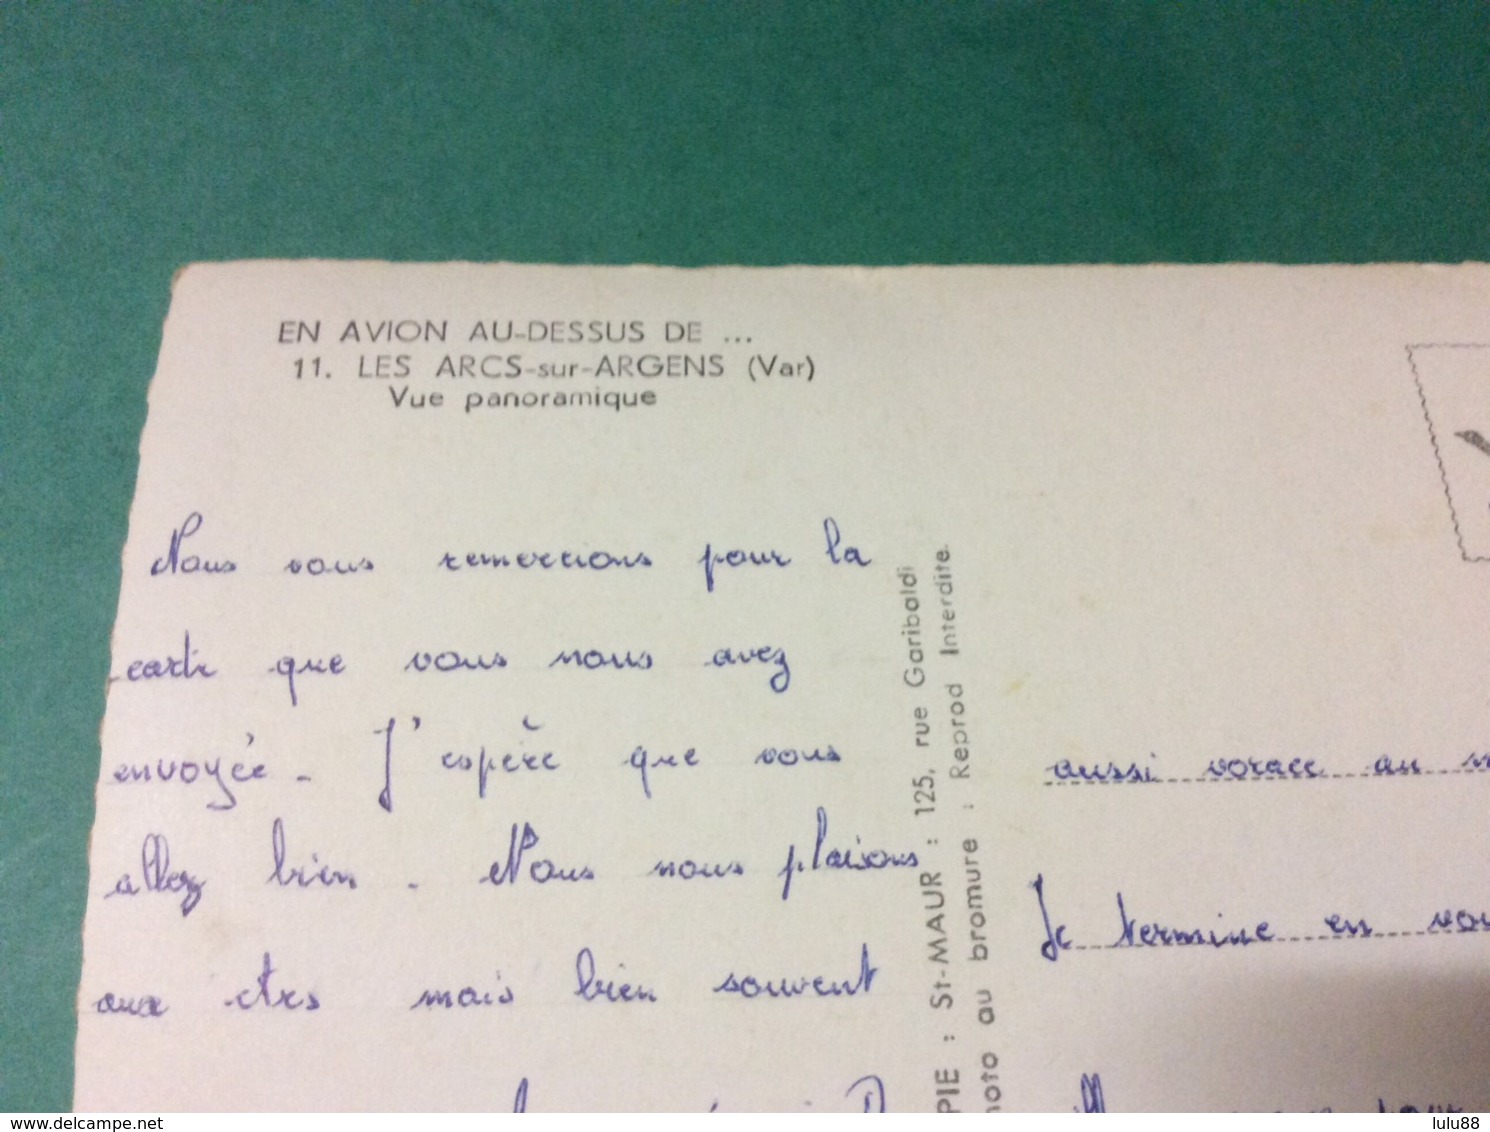 EN AVION AU-DESSUS DE ...
11. LES ARCS-sur-ARGENS (Var)
Vue panoramique
Nous vous remercions pour la
carte que vous nous avez
envoyée. J'espère que vous
allez bien. Nous nous plaisons
aux Arcs mais bien souvent
PIE : St-MAUR : 125, rue Garibaldi
hoto au bromure : Reprod Interdite.
aussi vorace au
Je termine en vou
delcampe.net
lulu88